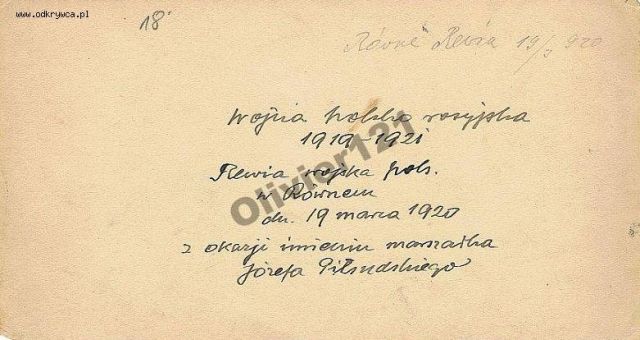 www.odkrywca.pl
18
Równe Rewia 19/3 920
Wojna polsko rosyjska
1919-1921
Rewia wojska pols.
w Równem
dn. 19 marca 1920
z okazji imienin marszałka
Józefa Piłsudskiego
Olivier121